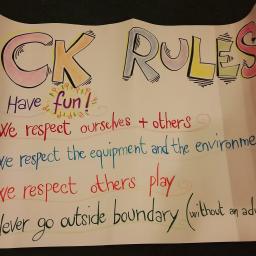 CK RULES
Have fun!
We respect ourselves + others
We respect the equipment and the environme
We respect others play
Never go outside boundary (without an adu